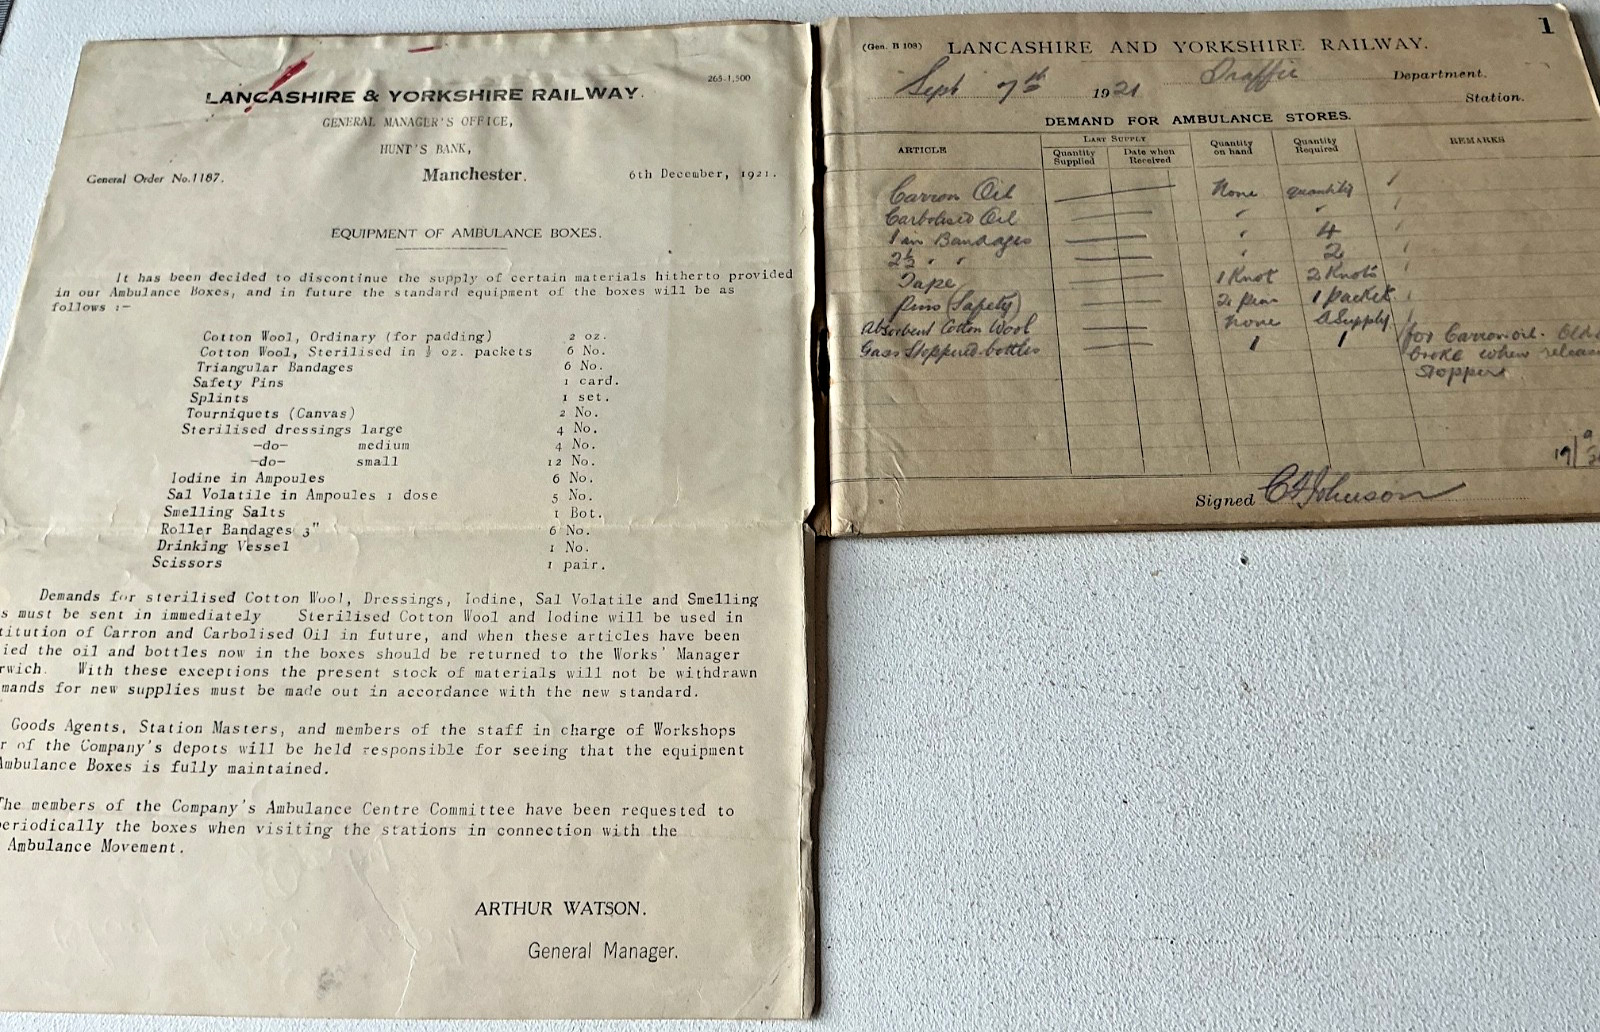 265-1,500
LANCASHIRE & YORKSHIRE RAILWAY.
GENERAL MANAGER'S OFFICE,
HUNT'S BANK,
General Order No.1187. Manchester. 6th December, 1921.
EQUIPMENT OF AMBULANCE BOXES.
It has been decided to discontinue the supply of certain materials hitherto provided
in our Ambulance Boxes, and in future the standard equipment of the boxes will be as
follows :-
Cotton Wool, Ordinary (for padding) 2 oz.
Cotton Wool, Sterilised in ½ oz. packets 6 No.
Triangular Bandages 6 No.
Safety Pins 1 card.
Splints 1 set.
Tourniquets (Canvas) 2 No.
Sterilised dressings large 4 No.
-do- medium 4 No.
-do- small 12 No.
Iodine in Ampoules 6 No.
Sal Volatile in Ampoules 1 dose 5 No.
Smelling Salts 1 Bot.
Roller Bandages 3" 6 No.
Drinking Vessel 1 No.
Scissors 1 pair.
Demands for sterilised Cotton Wool, Dressings, Iodine, Sal Volatile and Smelling
s must be sent in immediately Sterilised Cotton Wool and Iodine will be used in
titution of Carron and Carbolised Oil in future, and when these articles have been
ied the oil and bottles now in the boxes should be returned to the Works' Manager
rwich. With these exceptions the present stock of materials will not be withdrawn
mands for new supplies must be made out in accordance with the new standard.
Goods Agents, Station Masters, and members of the staff in charge of Workshops
r of the Company's depots will be held responsible for seeing that the equipment
Ambulance Boxes is fully maintained.
The members of the Company's Ambulance Centre Committee have been requested to
periodically the boxes when visiting the stations in connection with the
Ambulance Movement.
ARTHUR WATSON.
General Manager.
1
(Gen. B 108) LANCASHIRE AND YORKSHIRE RAILWAY.
Sept 7th 1921 Traffic Department.
Station.
DEMAND FOR AMBULANCE STORES.
ARTICLE LAST SUPPLY Quantity Supplied Date when Received Quantity on hand Quantity Required REMARKS
Carron Oil None quantity
Carbolised Oil " "
1 in Bandages " 4
2½ " " " 2
Tape 1 Knot 2 Knots
Pins (Safety) 1 packet
Absorbent Cotton Wool none a Supply
Gass Stoppered bottles 1 1 for Carron oil. Old
broke when releas
stopper
19/9/
Signed C Johnson